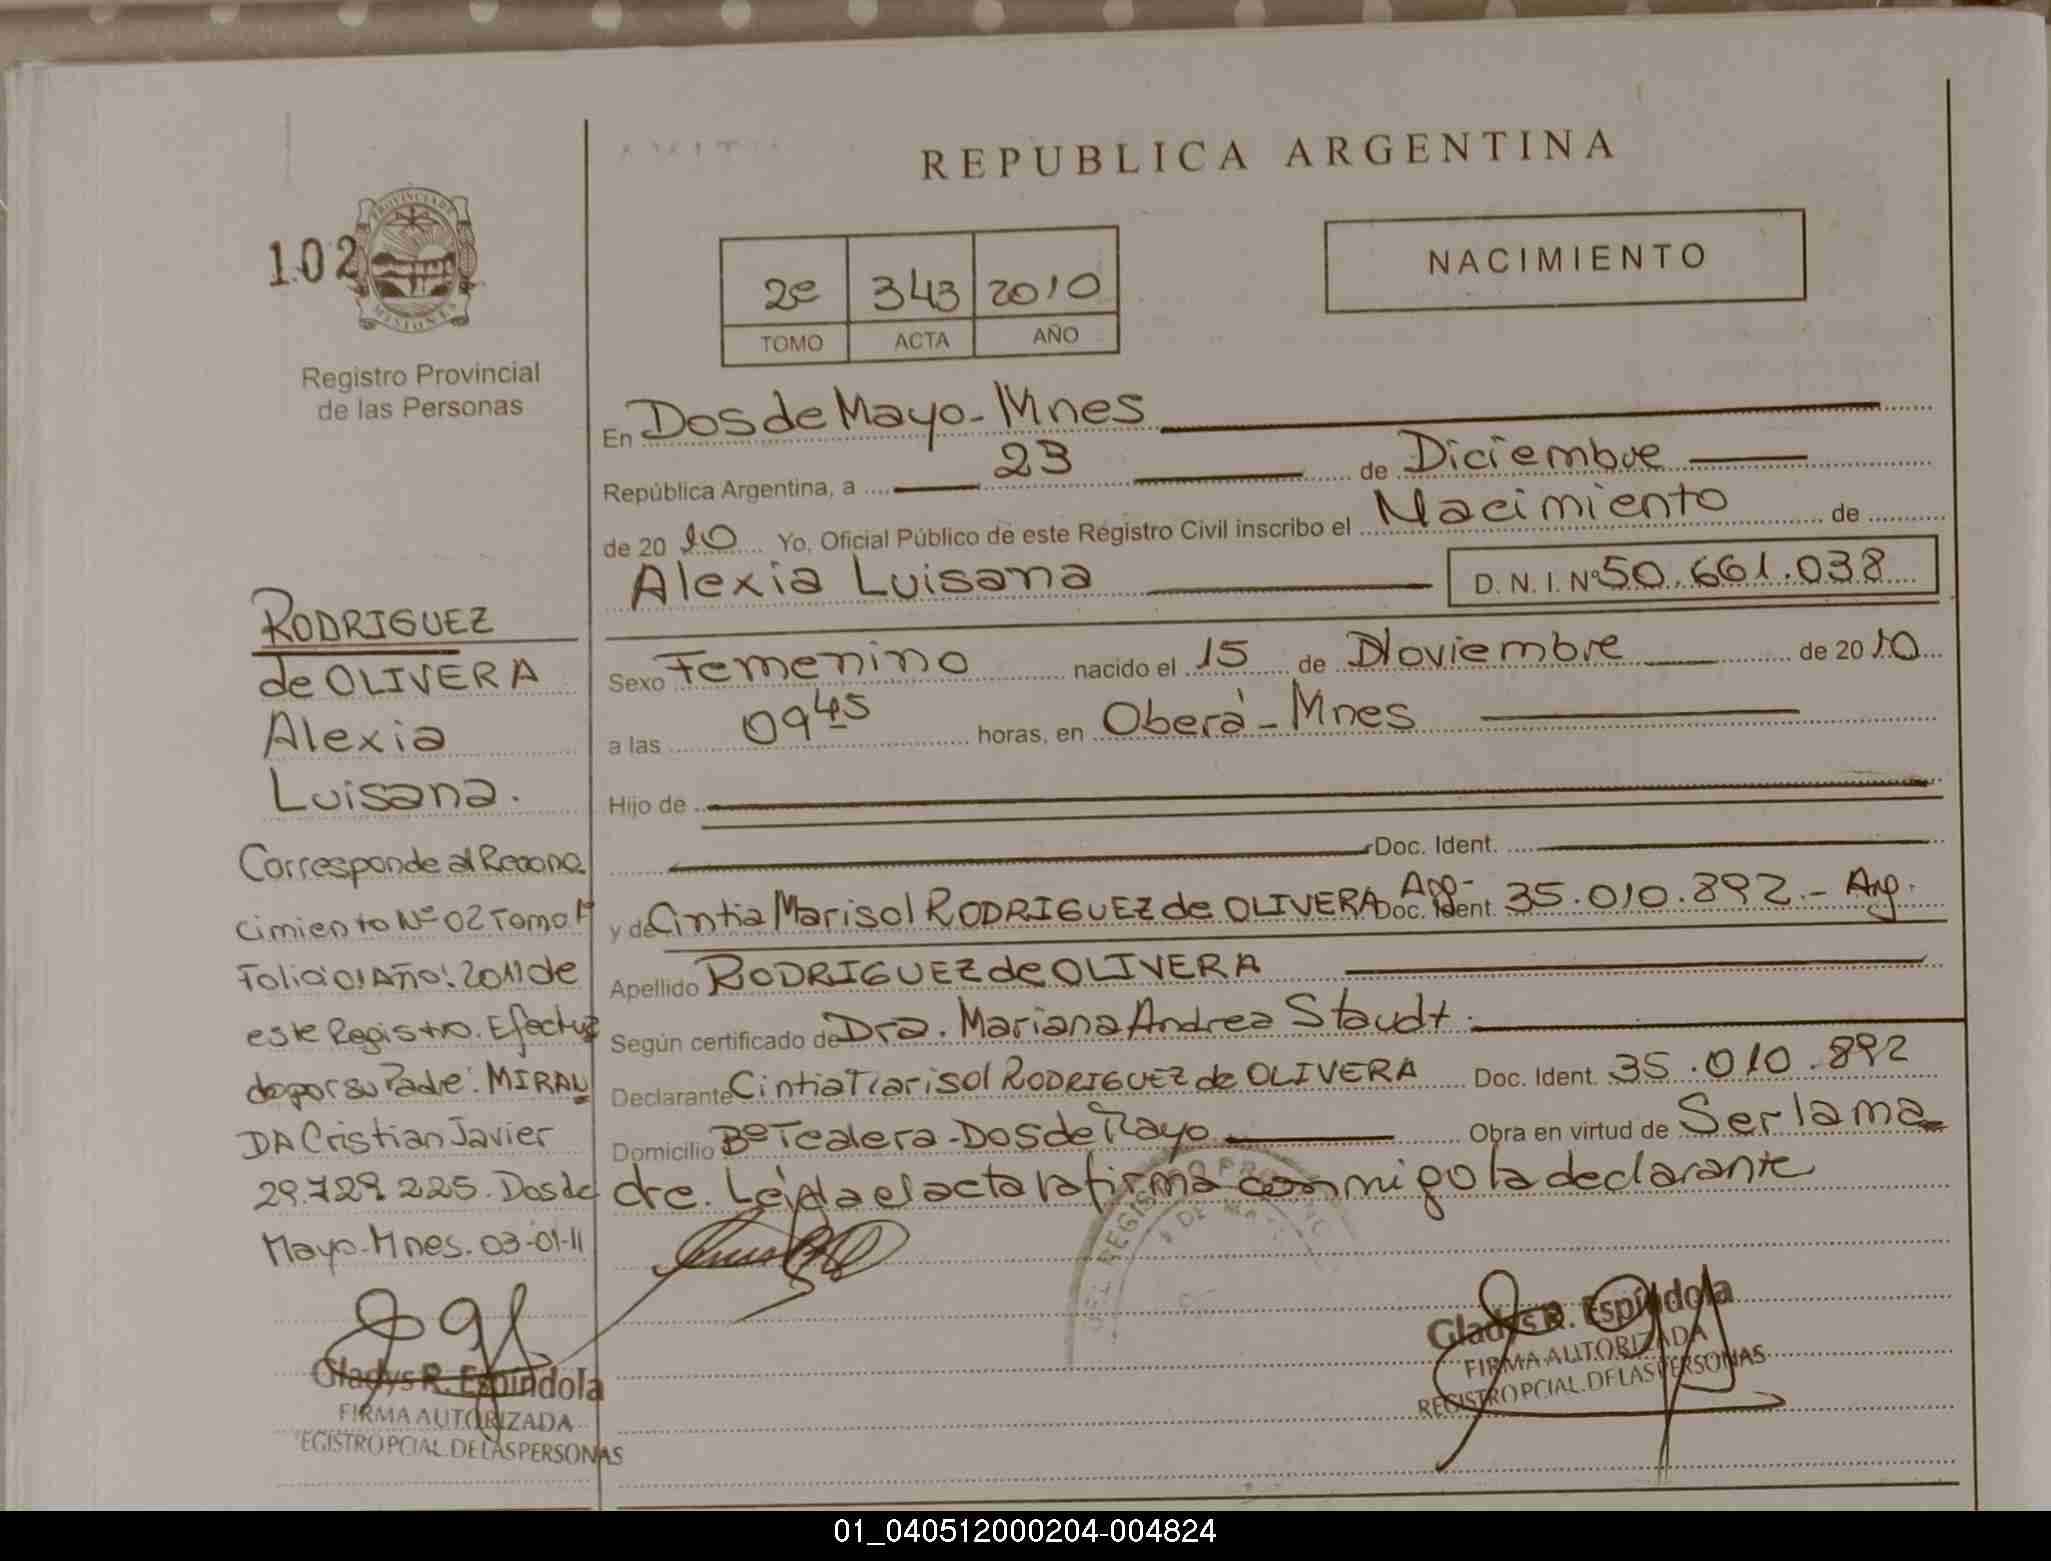 REPUBLICA ARGENTINA
102
PROVINCIA DE
MISIONES
Registro Provincial
de las Personas
2º 343 2010
TOMO ACTA AÑO
NACIMIENTO
En Dos de Mayo - Mnes
República Argentina, a 23 de Diciembre
de 2010 Yo, Oficial Público de este Registro Civil inscribo el Nacimiento de
Alexia Luisana D. N. I. Nº 50.661.038
Sexo Femenino nacido el 15 de Noviembre de 2010
a las 09 45 horas, en Oberá - Mnes
Hijo de
Doc. Ident.
y de Cintia Marisol RODRIGUEZ de OLIVERA Doc. Ident. Arg- 35.010.892.- Arg.
Apellido RODRIGUEZ de OLIVERA
Según certificado de Dra. Mariana Andrea Staudt.
Declarante Cintia Marisol RODRIGUEZ de OLIVERA Doc. Ident. 35.010.892
Domicilio Bº Tealera - Dos de Mayo Obra en virtud de Ser la ma
dre. Leída el acta la firma conmigo la declarante
Gladys R. Espíndola
FIRMA AUTORIZADA
REGISTRO PCIAL. DE LAS PERSONAS
RODRIGUEZ
de OLIVERA
Alexia
Luisana.
Corresponde al Recono
cimiento Nº 02 Tomo 1º
Folio 01 Año: 2011 de
este Registro. Efectua
do por su Padre: MIRAN
DA Cristian Javier
29.729.225. Dos de
Mayo - Mnes. 03-01-11
Gladys R. Espíndola
FIRMA AUTORIZADA
EGISTRO PCIAL. DE LAS PERSONAS
01_040512000204-004824